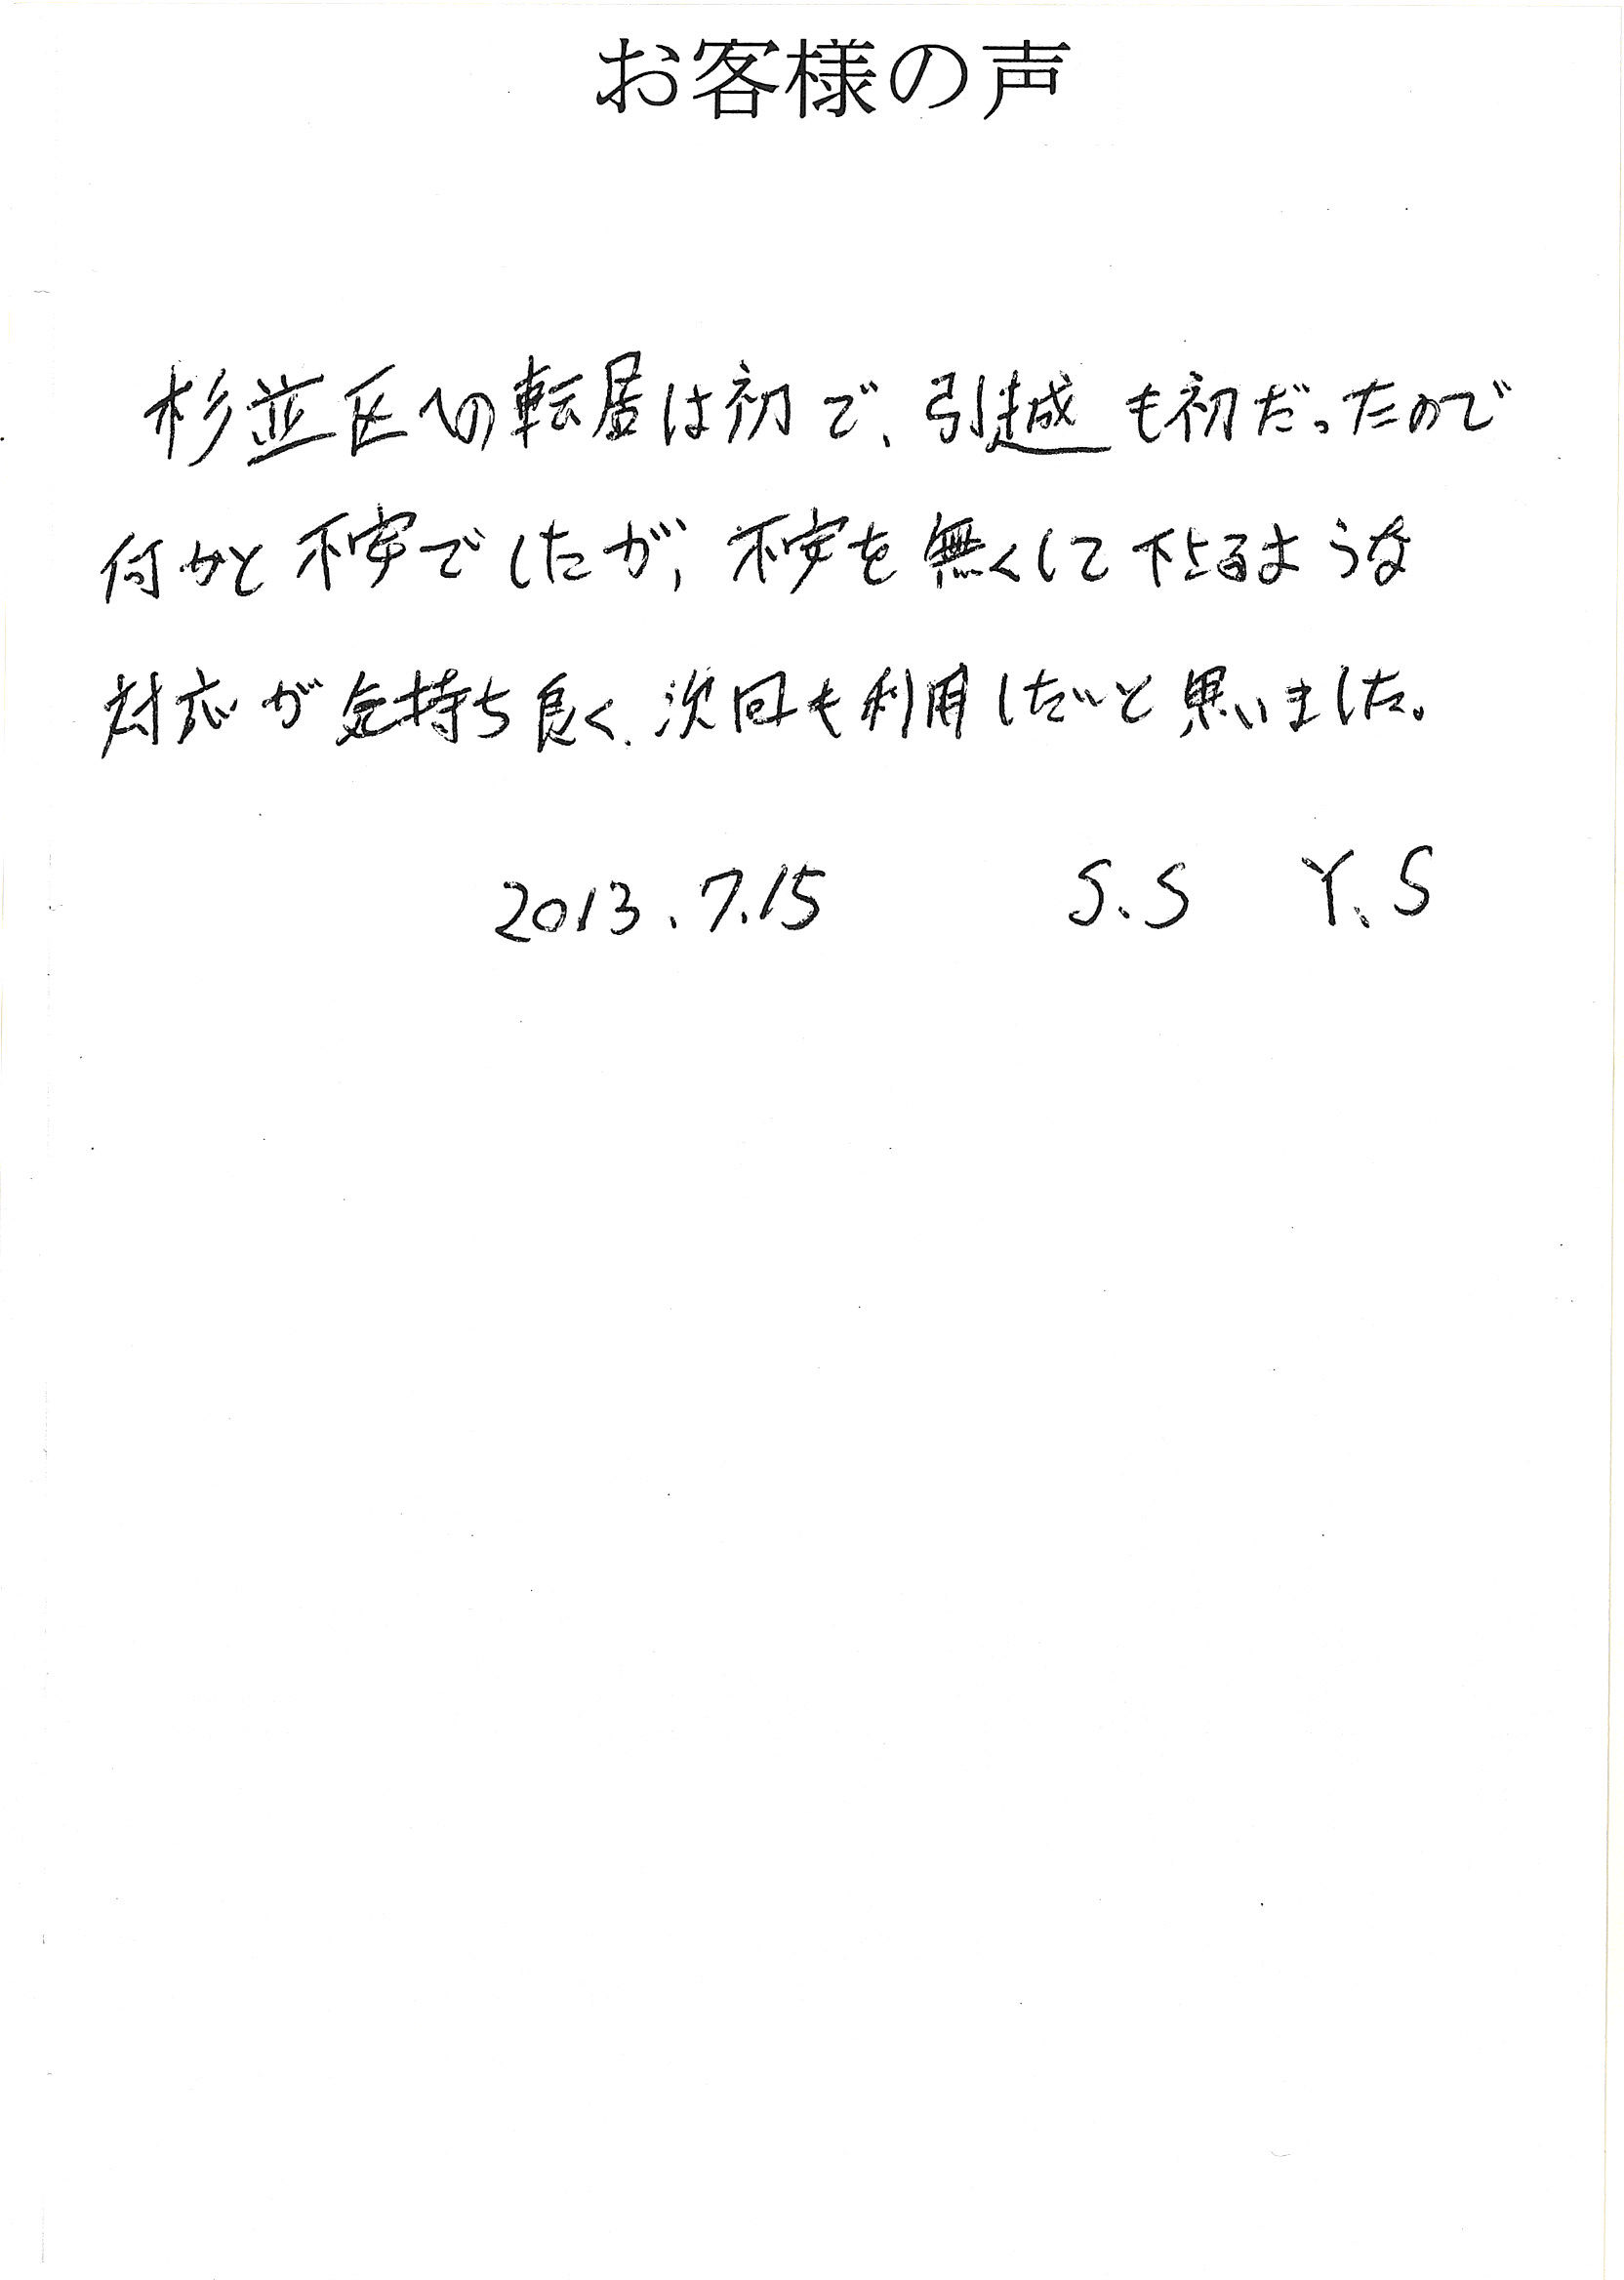 お客様の声
杉並区への転居は初で、引越も初だったので
何かと不安でしたが、不安を無くして下さるような
対応が気持ち良く、次回も利用したいと思いました。
2013.7.15 S.S Y.S